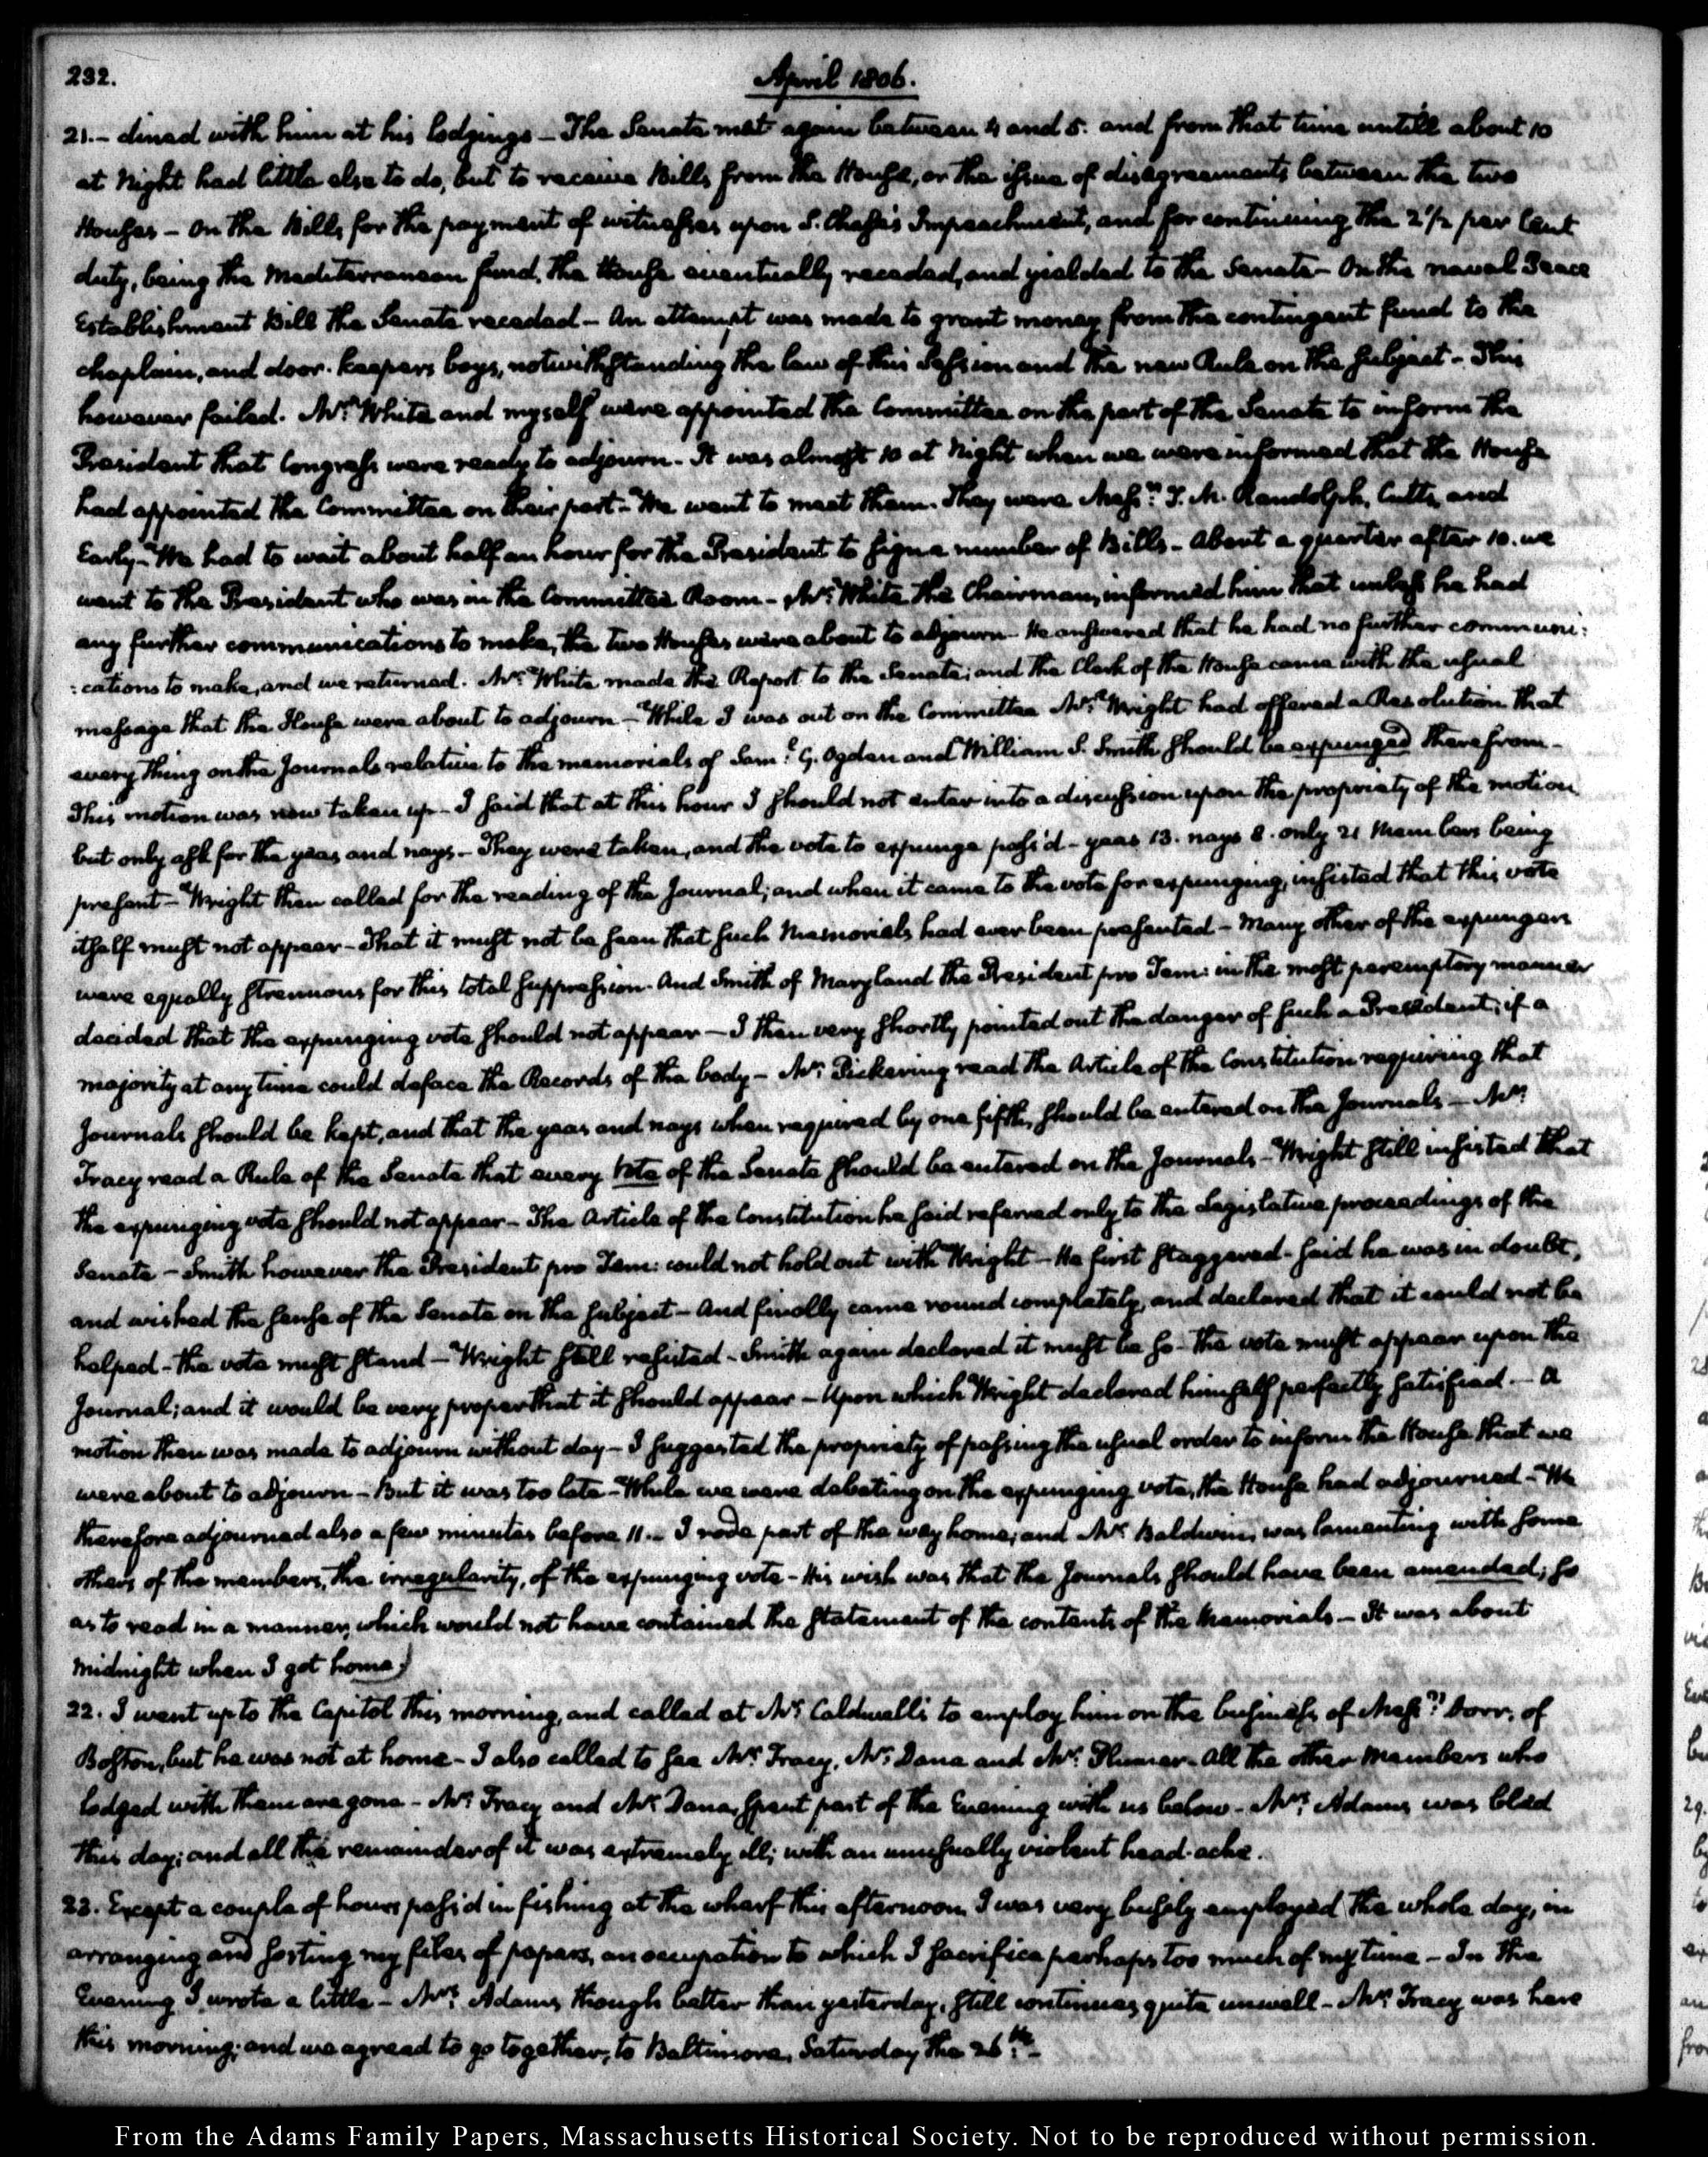 232.
April 1806.
21.- dined with him at his lodgings - The Senate met again between 4 and 5. and from that time untill about 10
at Night had little else to do, but to receive Bills from the House, or the issue of disagreements between the two
Houses - On the Bills for the payment of witnesses upon S. Chase's Impeachment, and for continuing the 2 1/2 per Cent
duty, being the Mediterranean fund, the House eventually receded, and yielded to the Senate - On the naval Peace
Establishment Bill the Senate receded - An attempt was made to grant money from the contingent fund to the
chaplain, and door-keepers boys, notwithstanding the law of this Session and the new Rule on the subject - This
however failed. Mr. White and myself were appointed the Committee on the part of the Senate to inform the
President that Congress were ready to adjourn - It was almost 10 at Night when we were informed that the House
had appointed the Committee on their part - We went to meet them. They were Messrs. T. M. Randolph, Cutts, and
Early - We had to wait about half an hour for the President to sign a number of Bills - About a quarter after 10. we
went to the President who was in the Committee Room - Mr. White the Chairman, informed him that unless he had
any further communications to make, the two Houses were about to adjourn - He answered that he had no further communi:
:cations to make, and we returned. Mr. White made the Report to the Senate; and the Clerk of the House came with the usual
message that the House were about to adjourn - While I was out on the Committee Mr. Wright had offered a Resolution that
every thing on the Journals relative to the memorials of Saml. G. Ogden and William S. Smith should be expunged therefrom -
This motion was now taken up - I said that at this hour I should not enter into a discussion upon the propriety of the motion
but only ask for the yeas and nays - They were taken, and the vote to expunge pass'd - yeas 13. nays 8. only 21 Members being
present - Wright then called for the reading of the Journal; and when it came to the vote for expunging, insisted that this vote
itself must not appear - That it must not be seen that such Memorials had ever been presented - Many other of the expungers
were equally strenuous for this total suppression. And Smith of Maryland the President pro Tem: in the most peremptory manner
decided that the expunging vote should not appear - I then very shortly pointed out the danger of such a Precedent; if a
majority at any time could deface the Records of the body - Mr. Pickering read the Article of the Constitution requiring that
Journals should be kept, and that the yeas and nays when required by one fifth, should be entered on the Journals - Mr.
Tracy read a Rule of the Senate that every Vote of the Senate should be entered on the Journals - Wright still insisted that
the expunging vote should not appear - The Article of the Constitution he said referred only to the Legislative proceedings of the
Senate - Smith however the President pro Tem: could not hold out with Wright - He first staggered - said he was in doubt,
and wished the sense of the Senate on the subject - And finally came round completely, and declared that it could not be
helped - the vote must stand - Wright still resisted - Smith again declared it must be so - the vote must appear upon the
Journal; and it would be very proper that it should appear - Upon which Wright declared himself perfectly satisfied. - A
motion then was made to adjourn without day - I suggested the propriety of passing the usual order to inform the House that we
were about to adjourn - But it was too late - While we were debating on the expunging vote, the House had adjourned - We
therefore adjourned also a few minutes before 11. - I rode part of the way home; and Mr. Baldwin, was lamenting with some
others of the members, the irregularity, of the expunging vote - His wish was that the Journals should have been amended; so
as to read in a manner, which would not have contained the statement of the contents of the Memorials - It was about
midnight when I got home.
22. I went up to the Capitol this morning, and called at Mr. Caldwell's to employ him on the business of Messrs. Dorr, of
Boston, but he was not at home - I also called to see Mr. Tracy, Mr. Dana and Mr. Plumer - All the other Members who
lodged with them are gone - Mr. Tracy and Mr. Dana, spent part of the Evening with us below - Mrs. Adams was bled
this day; and all the remainder of it was extremely ill; with an unusually violent head-ache.
23. Except a couple of hours pass'd in fishing at the wharf this afternoon, I was very busily employed the whole day, in
arranging and sorting my files of papers, an occupation to which I sacrifice perhaps too much of my time - In the
Evening I wrote a little - Mrs. Adams though better than yesterday, still continues quite unwell - Mr. Tracy was here
this morning; and we agreed to go together, to Baltimore, Saturday the 26th. -
From the Adams Family Papers, Massachusetts Historical Society. Not to be reproduced without permission.